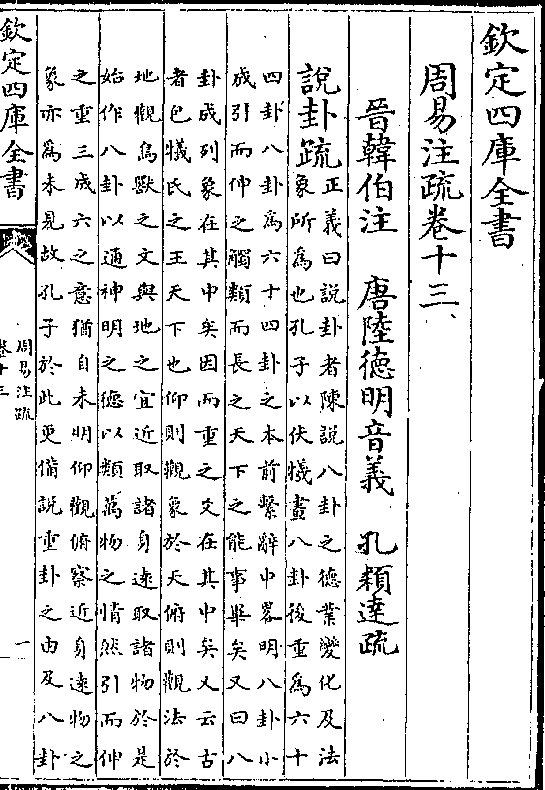 欽定四庫全書
周易注疏卷十三
晉韓伯注　唐陸德明音義　孔穎達疏
說卦疏
正義曰說卦者陳說八卦之德業變化及法
象所為也孔子以伏犧畫八卦後重為六十
四卦八卦為六十四卦之本前繫辭中畧明八卦小
成引而伸之觸類而長之天下之能事畢矣又曰八
卦成列象在其中矣因而重之爻在其中矣又云古
者包犧氏之王天下也仰則觀象於天俯則觀法於
地觀鳥獸之文與地之宜近取諸身遠取諸物於是
始作八卦以通神明之德以類萬物之情然引而伸
之重三成六之意猶自未明仰觀俯察近身遠物之
象亦為未見故孔子於此更備說重卦之由及八卦
欽定四庫全書
周易注疏
卷十三
一